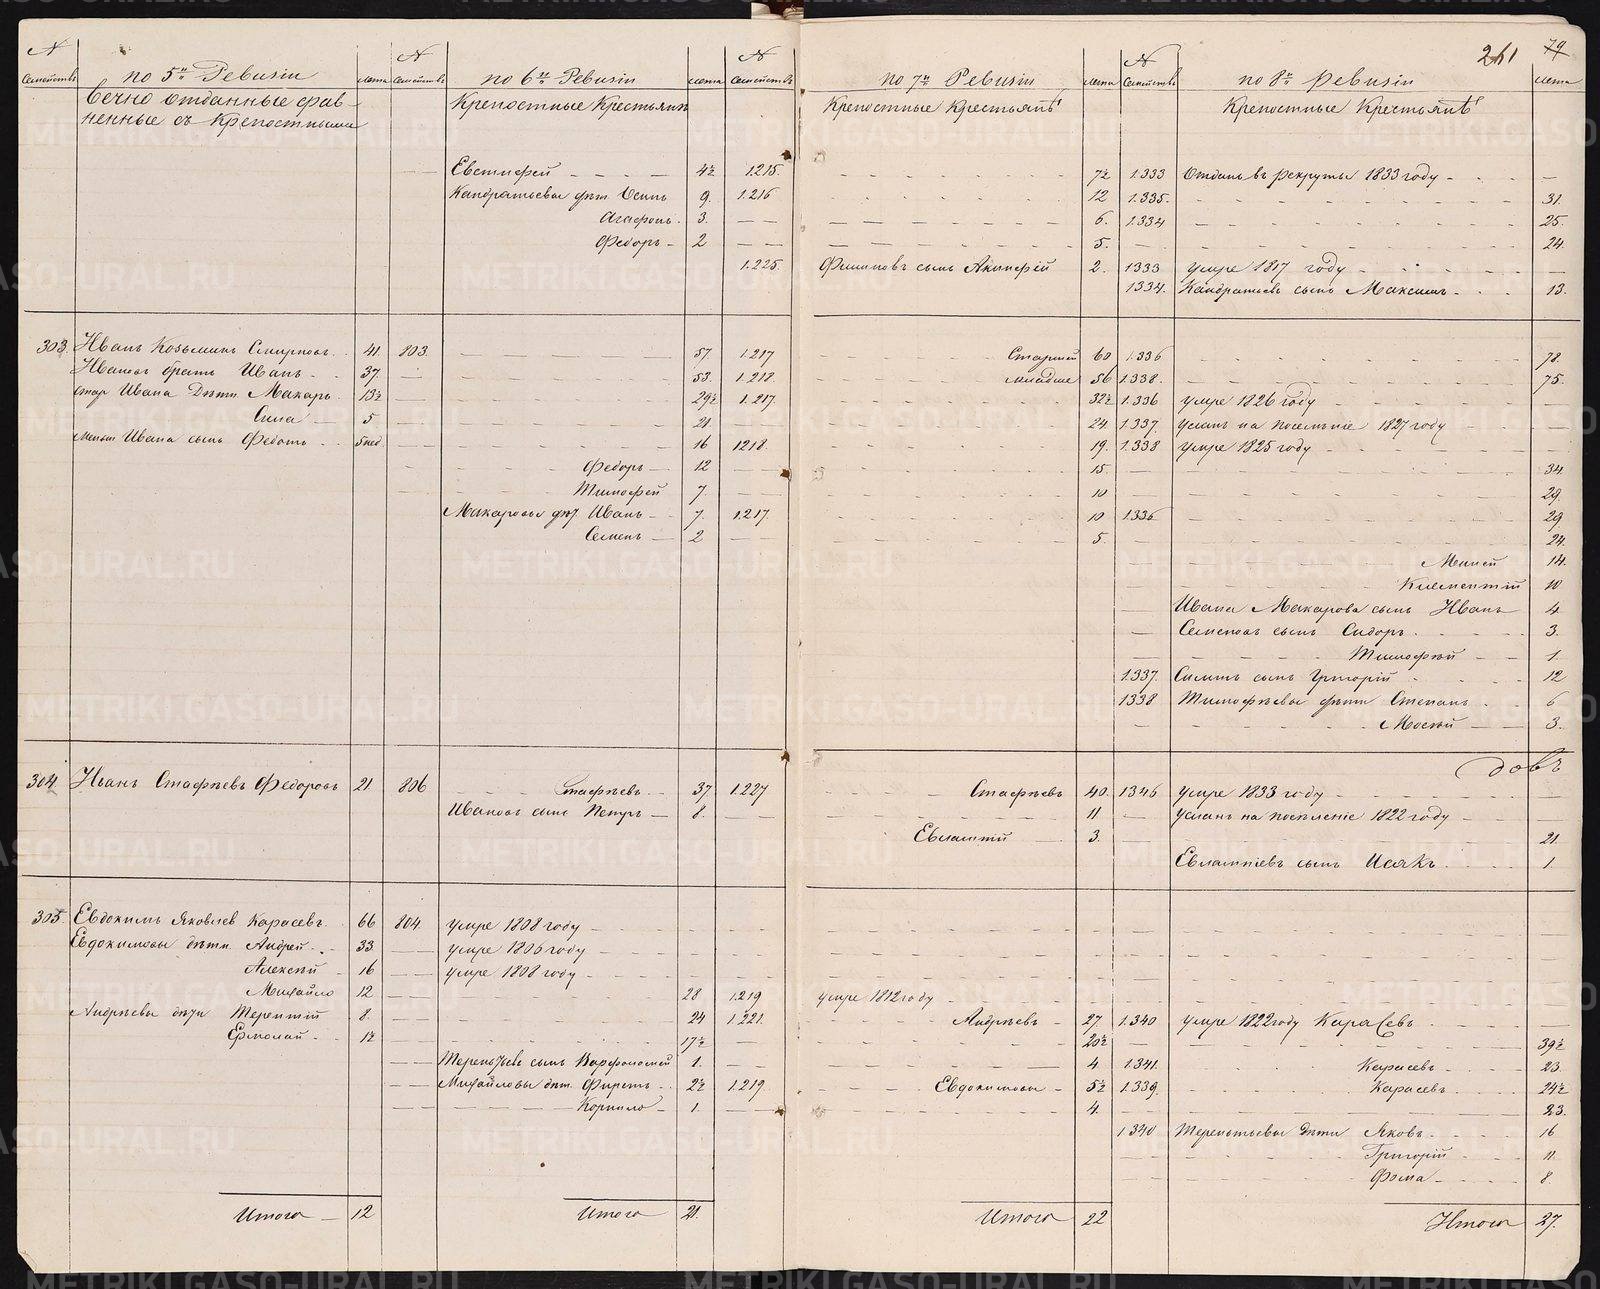 261 79
№ Семействъ по 5й Ревизіи лѣта № Семействъ по 6й Ревизіи лѣта № Семействъ по 7й Ревизіи лѣта № Семействъ по 8й Ревизіи лѣта
Вечно отданные срав-
ненные съ Крепостными
Крепостные Крестьяня
Крепостные Крестьянѣ
Крепостные Крестьянѣ
Евстифей 4½ 1.215. 7½ 1.333 Отданъ въ рекруты 1833 году
Кандратьевы дѣт. Осипъ 9. 1.216 12 1.335. 31.
Агафонъ 3. 6. 1.334 25.
Федоръ 2 5. 24.
1.225. Филиповъ сынъ Акинфій 2. 1333 умре 1817 году
1334. Кандратьевъ сынъ Максимъ 13.
303. Иванъ Козьминъ Смирновъ 41 803. 57. 1.217 Старшій 60 1.336 78.
Ивановъ братъ Иванъ 37 53. 1.218. младше 56 1.338. 75.
стар Ивана Дѣти Макаръ 13½ 29½ 1.217. 32½ 1.336 умре 1826 году
Сила 5 21 24 1.337. усланъ на поселеніе 1827 году
меньш Ивана сынъ Федотъ 5 нед. 16 1218. 19. 1.338 умре 1825 году
Федоръ 12 15. 34.
Тимофей 7. 10 29.
Макаровы дѣт Иванъ 7. 1.217 10 1336 29.
Семенъ 2 5. 24.
Миней 14.
Климентій 10
Ивана Макарова сынъ Иванъ 4.
Семеновъ сынъ Сидоръ 3.
Тимофѣй 1.
1.337. Силинъ сынъ Григорій 12
1338 Тимофѣевы дѣти Степанъ 6
Мосѣй 3.
304. Иванъ Стафѣевъ Федоровъ 21 806 Стафѣевъ 37. 1.227 Стафѣевъ 40. 1346 умре 1833 году довъ
Ивановъ сынъ Петръ 8. 11 усланъ на поселеніе 1822 году
Евлампій 3. 21.
Евлампіевъ сынъ Исякъ 1.
305. Евдокимъ Яковлев Карасевъ 66 804. умре 1808 году
Евдокимовы дѣти Андрей 33. умре 1806 году
Алексѣй 16 умре 1808 году
Михайло 12 28 1.219 умре 1812 году
Андрѣевы дѣти Терентій 8. 24 1.221. Андрѣевъ 27. 1.340 умре 1822 году Карасевъ
Ермолай 1½ 17½ 20½ 39½
Терентьевъ сынъ Варфоломей 1. 4. 1341. Карасевъ 23.
Михайловы дѣт. Фирстъ 2½ 1.219. Евдокимовы 5½ 1.339. Карасевъ 24½
Корнило 1. 4. 23.
1340 Терентьевы дѣти Яковъ 16
Григорій 11.
Фома 8.
Итого 12 Итого 21. Итого 22 Итого 27.